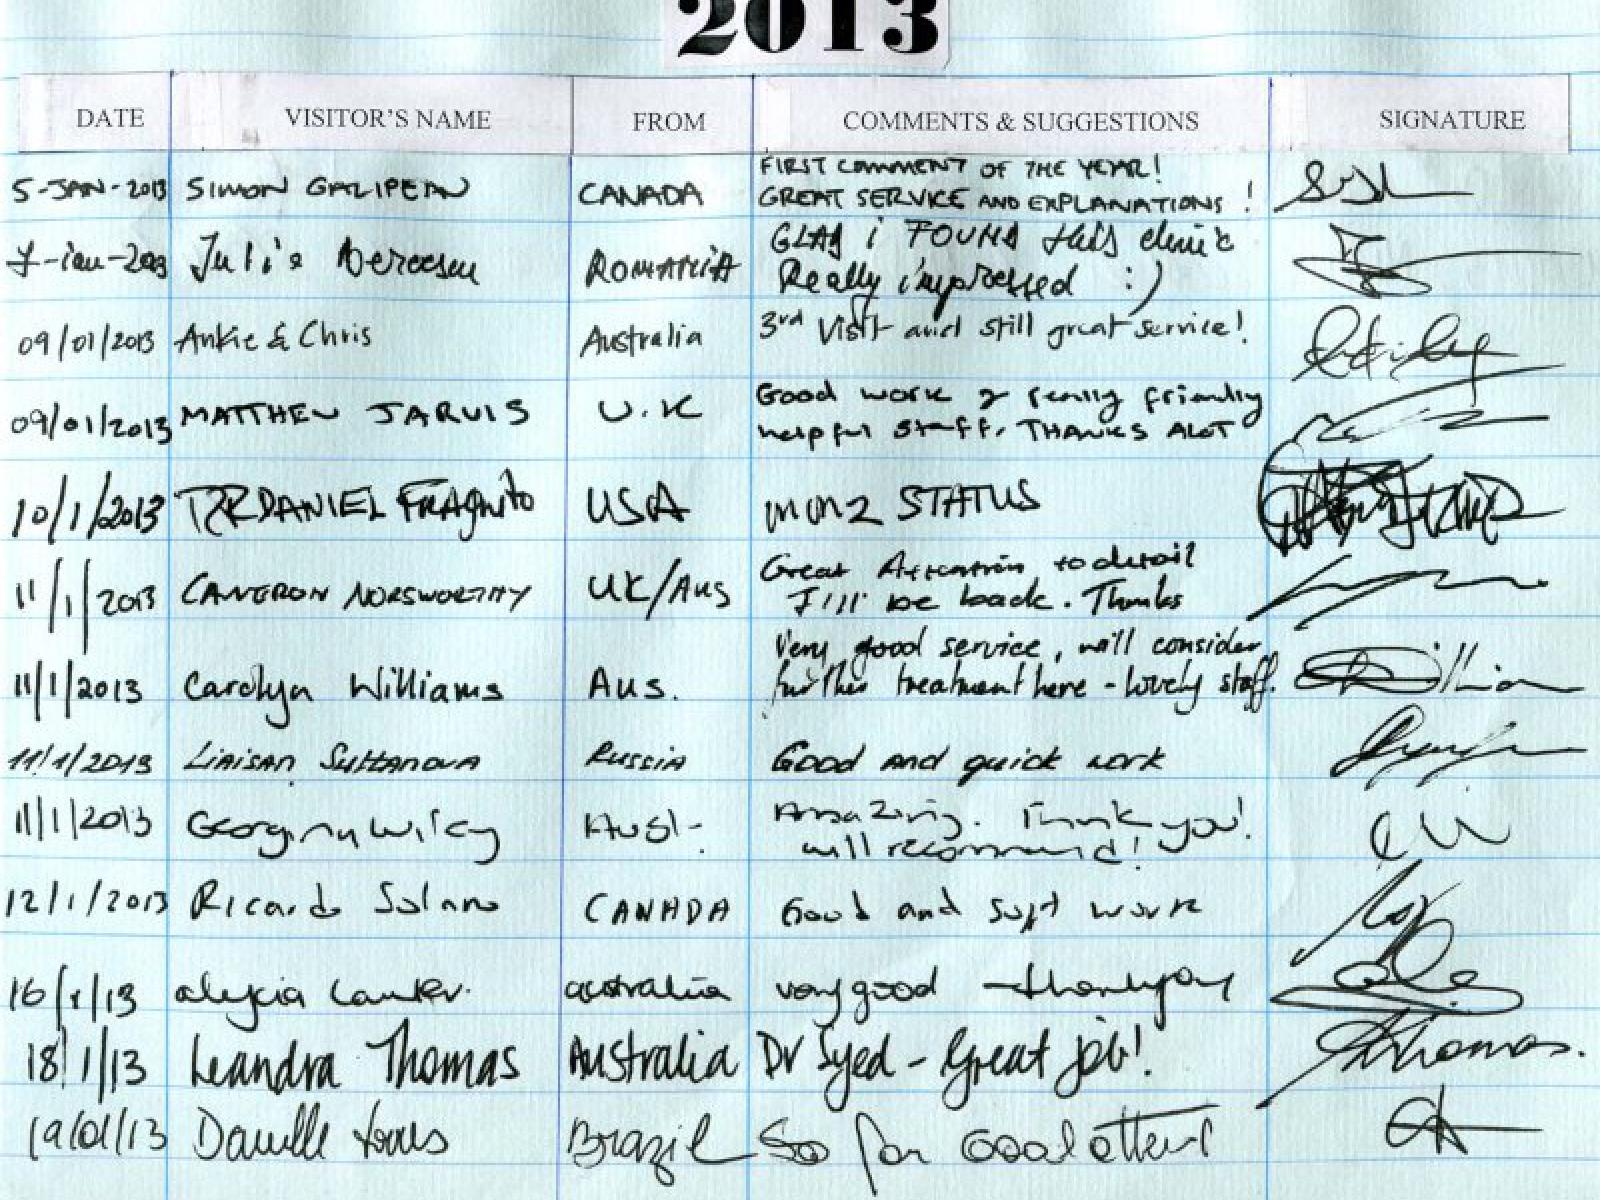 2013
DATE VISITOR'S NAME FROM COMMENTS & SUGGESTIONS SIGNATURE
5-JAN-2013 SIMON GALIPEAU CANADA FIRST COMMENT OF THE YEAR!
GREAT SERVICE AND EXPLANATIONS!
7-ian-2013 ROMANIA GLAD i FOUND this clinic
Really impressed :)
09/01/2013 Ankie & Chris Australia 3rd Visit and still great service!
09/01/2013 MATTHEW JARVIS U.K Good work & really friendly
helpful staff. THANKS ALOT
10/1/2013 DANIEL FRAGNITO USA STATUS
11/1/2013 CAMERON NORSWORTHY UK/AUS Great Attention to detail
I'll be back. Thanks
11/1/2013 Carolyn Williams Aus. Very good service, will consider
further treatment here - lovely staff.
11/1/2013 Liaisan Sultanova Russia Good and quick work
11/1/2013 Georgina Wiley Aust. Amazing. Thank you!
will recommend!
12/1/2013 Ricardo Solano CANADA Good and soft work
16/1/13 alycia australia very good thankyou
18/1/13 Leandra Thomas Australia Dr Syed - Great job! Thomas.
19/01/13 Brazil So far Good